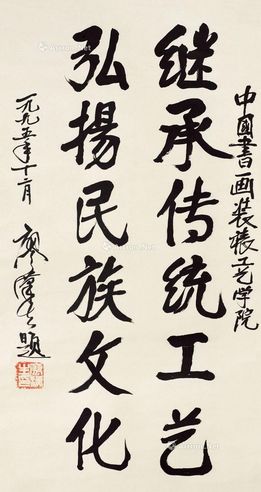 中國書画装裱艺学院
继承传统工艺
弘揚民族文化
一九九五年十二月
廖漢生題